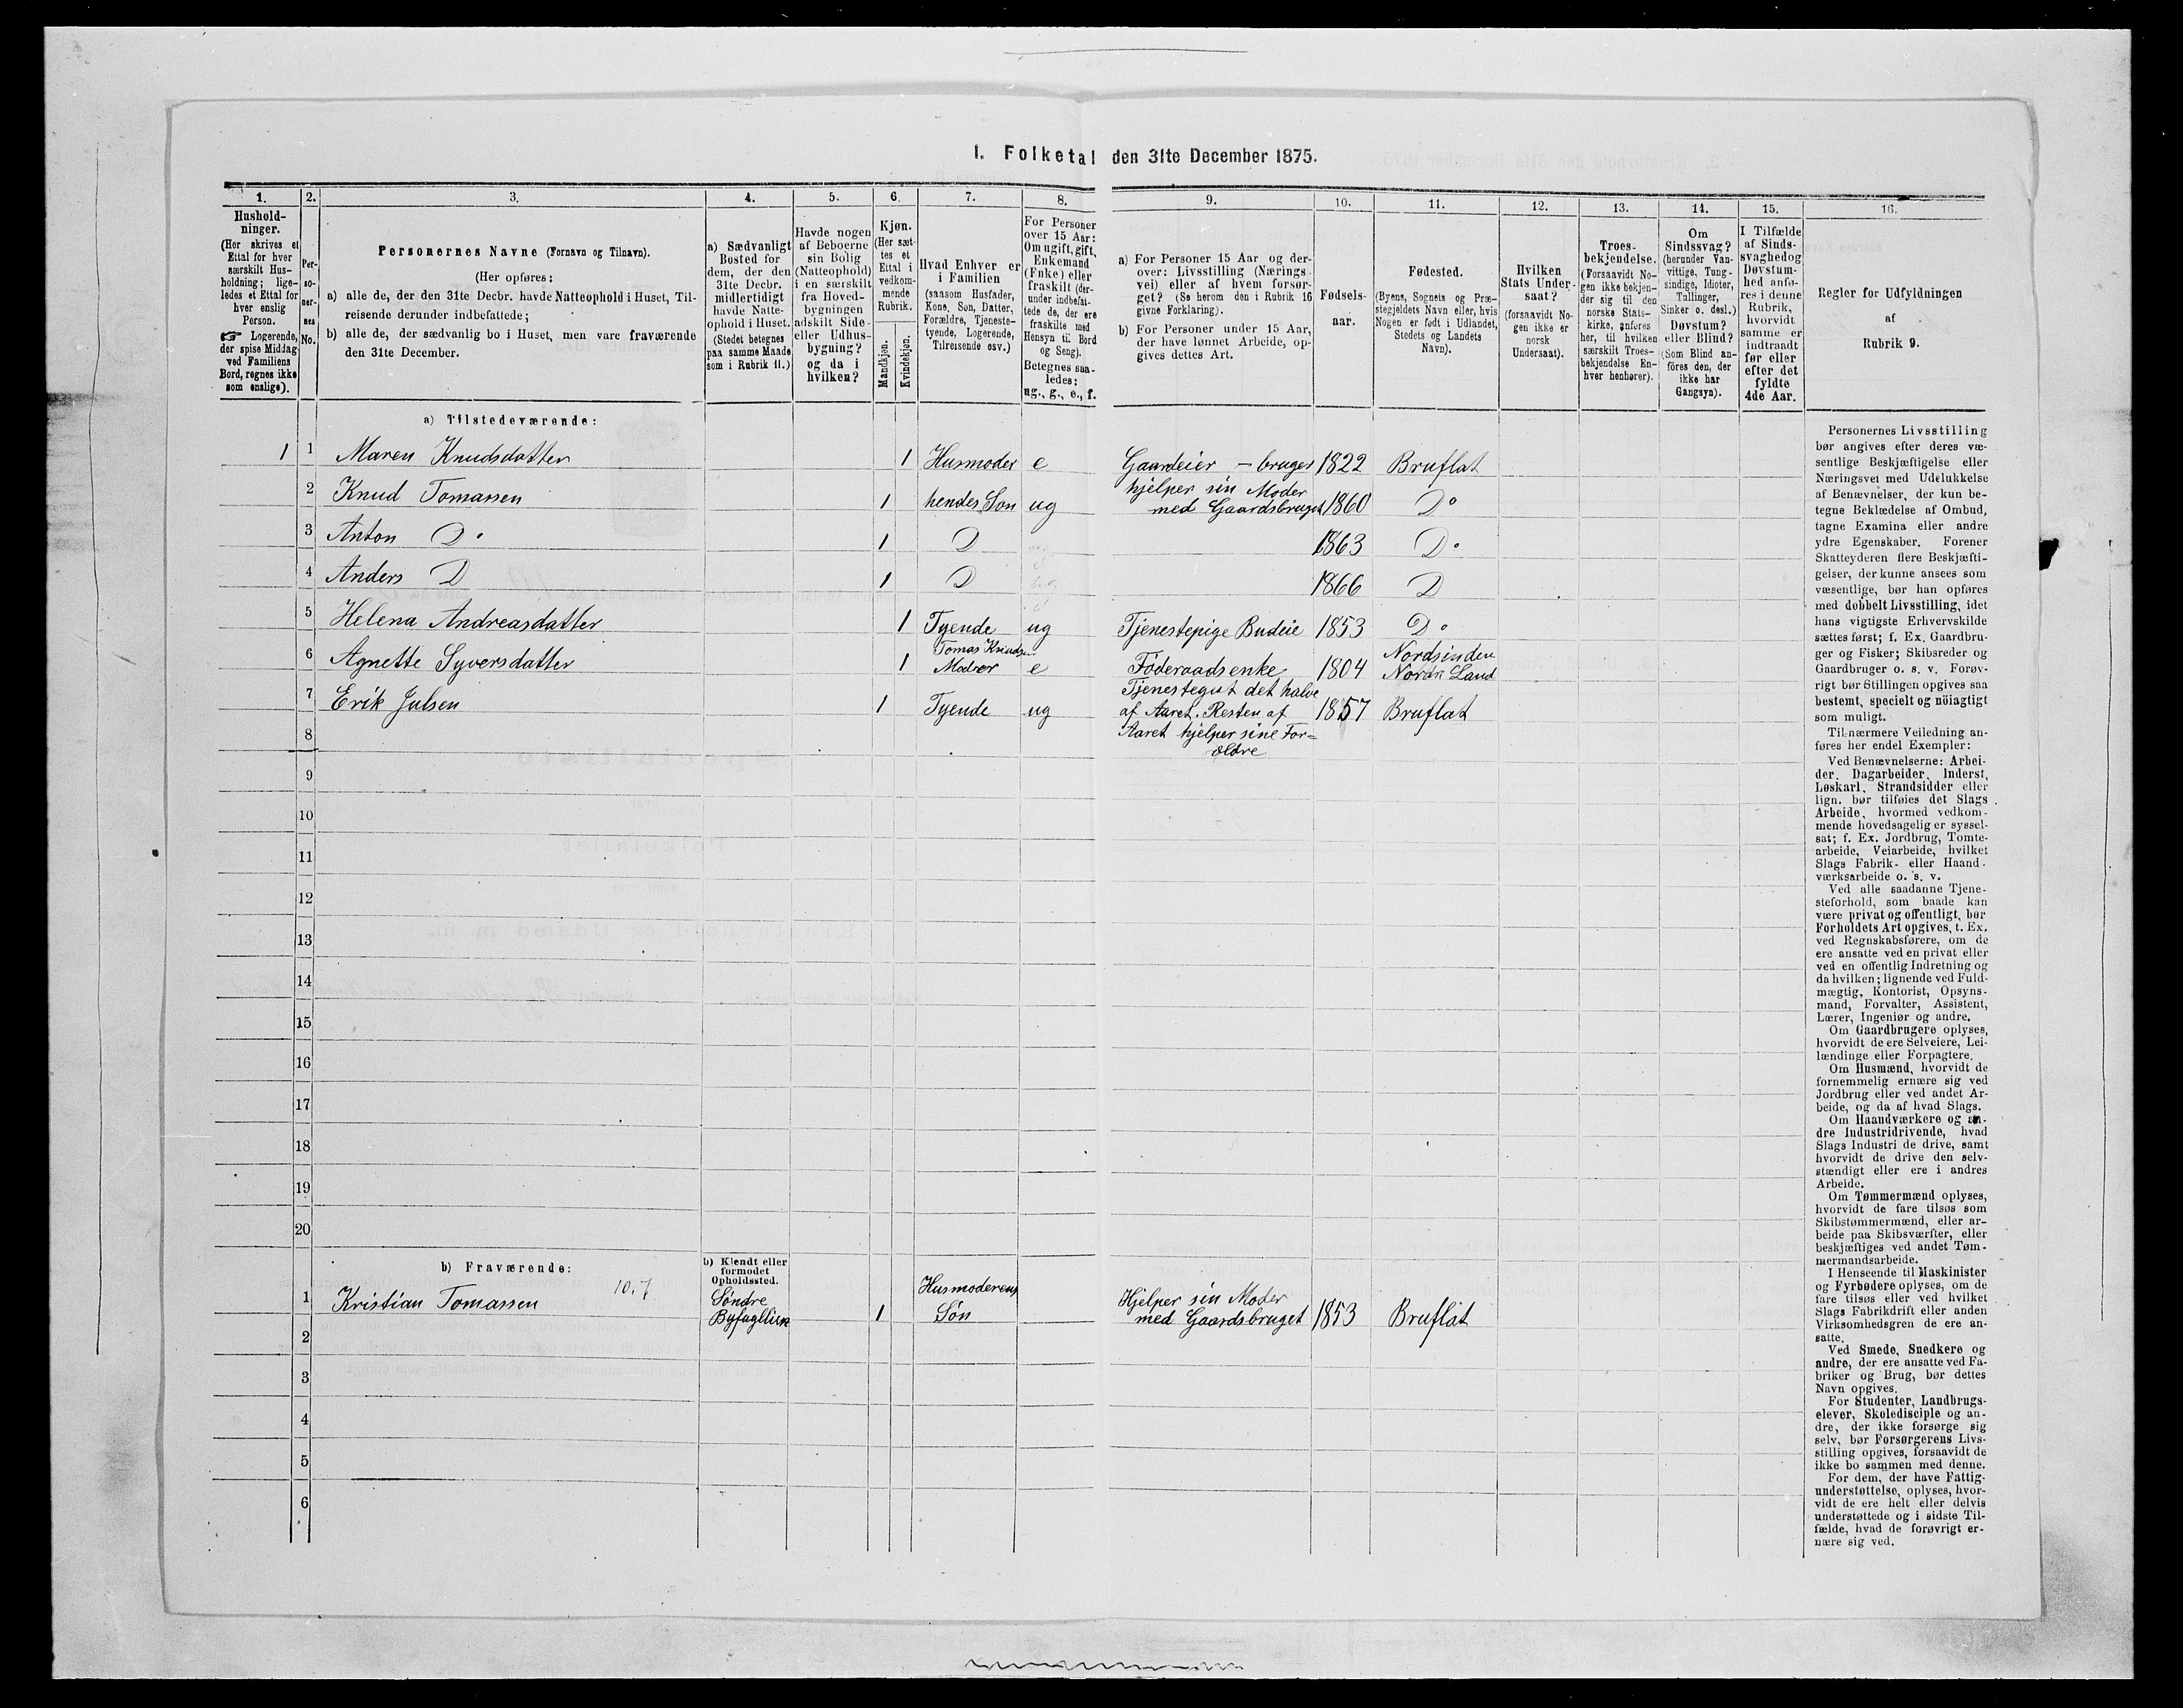 1. Folketal den 31te December 1875.
1. 2. 3. 4. 5. 6. 7. 8. 9. 10. 11. 12. 13. 14. 15. 16.
Hushold-
ninger.
(Her skrives et
Ettal for hver
særskilt Hus-
holdning; lige-
ledes et Ettal for
hver enslig
Person.
☞ Logerende,
der spise Middag
ved Familiens
Bord, regnes ikke
som enslige).
Per-
so-
ner-
nes
No.
Personernes Navne (Fornavn og Tilnavn).
(Her opføres:
a) alle de, der den 31te Decbr. havde Natteophold i Huset, Til-
reisende derunder indbefattede;
b) alle de, der sædvanlig bo i Huset, men vare fraværende
den 31te December.
a) Sædvanligt
Bosted for
dem, der den
31te Decbr.
midlertidigt
havde Natte-
ophold i Huset.
(Stedet betegnes
paa samme Maade
som i Rubrik 11.)
Havde nogen
af Beboerne
sin Bolig
(Natteophold)
i en særskilt
fra Hoved-
bygningen
adskilt Side-
eller Udhus-
bygning?
og da i
hvilken?
Kjøn.
(Her sæt-
tes et
Ettal i
vedkom-
mende
Rubrik.
Mandkjøn.
Kvindekjøn.
Hvad Enhver er
i Familien
(saasom Husfader,
Kone, Søn, Datter,
Forældre, Tjeneste-
tyende, Logerende,
Tilreisende osv.)
For Personer
over 15 Aar:
Om ugift, gift,
Enkemand
(Enke) eller
fraskilt (der-
under indbefat-
tede de, der ere
fraskilte med
Hensyn til Bord
og Seng).
Betegnes saa-
ledes:
ug., g., e., f.
a) For Personer 15 Aar og der-
over: Livsstilling (Nærings-
vei) eller af hvem forsør-
get? (Se herom den i Rubrik 16
givne Forklaring).
b) For Personer under 15 Aar,
der have lønnet Arbeide, op-
gives dettes Art.
Fødsels-
aar.
Fødested.
(Byens, Sognets og Præ-
stegjeldets Navn eller, hvis
Nogen er født i Udlandet,
Stedets og Landets
Navn).
Hvilken
Stats Under-
saat?
(forsaavidt No-
gen ikke er
norsk
Undersaat).
Troes-
bekjendelse.
(Forsaavidt No-
gen ikke bekjen-
der sig til den
norske Stats-
kirke, anføres
her, til hvilken
særskilt Troes-
bekjendelse En-
hver henhører).
Om
Sindssvag?
(herunder Van-
vittige, Tung-
sindige, Idioter,
Tullinger,
Sinker o. desl.)
Døvstum?
eller Blind?
(Som Blind an-
föres den, der
ikke har
Gangsyn).
I Tilfælde
af Sinds-
svaghed og
Døvstum-
hed anfø-
res i denne
Rubrik,
hvorvidt
samme er
indtraadt
før eller
efter det
fyldte
4de Aar.
Regler for Udfyldningen
af
Rubrik 9.
a) Tilstedeværende:
1 1 Maren Knudsdatter 1 Husmoder e Gaardeier - bruger 1822 Bruflat
2 Knud Tomassen 1 hendes Søn ug hjelper sin Moder
med Gaardsbruget 1860 Do
3 Anton Do 1 D 1863 Do
4 Anders D 1 D 1866 D
5 Helena Andreasdatter 1 Tyende ug Tjenestepige Budeie 1853 Do
6 Agnette Syversdatter 1 Tomas Knuds
Moder e Föderaadsenke 1804 Nordsinden
Nordr Land
7 Erik Julsen 1 Tyende ug Tjenestegut det halve
af Aaret. Resten af 1857 Bruflat
8 Aaret hjelper sine For=
ældre
9
10
11
12
13
14
15
16
17
18
19
20
b) Fraværende:
b) Kjendt eller
formodet
Opholdssted.
1 Kristian Tomassen 10.7 Søndre
1 Husmoderens
Søn Hjelper sin Moder
med Gaardsbruget 1853 Bruflat
2
3
4
5
6
Personernes Livsstilling
bør angives efter deres væ-
sentlige Beskjæftigelse eller
Næringsvei med Udelukkelse
af Benævnelser, der kun be-
tegne Beklædelse af Ombud,
tagne Examina eller andre
ydre Egenskaber. Forener
Skatteyderen flere Beskjæfti-
gelser, der kunne ansees som
væsentlige, bør han opføres
med dobbelt Livsstilling, idet
hans vigtigste Erhvervskilde
sættes først; f. Ex. Gaardbru-
ger og Fisker; Skibsreder og
Gaardbruger o. s. v. Forøv-
rigt bør Stillingen opgives saa
bestemt, specielt og nöiagtigt
som muligt.
Til nærmere Veiledning an-
føres her endel Exempler:
Ved Benævnelserne: Arbei-
der, Dagarbeider, Inderst,
Løskarl, Strandsidder eller
lign. bør tilføies det Slags
Arbeide, hvormed vedkom-
mende hovedsagelig er syssel-
sat; f. Ex. Jordbrug, Tomte-
arbeide, Veiarbeide, hvilket
Slags Fabrik- eller Haand-
værksarbeide o. s. v.
Ved alle saadanne Tjene-
steforhold, som baade kan
være privat og offentligt, bør
Forholdets Art opgives, t. Ex.
ved Regnskabsførere, om de
ere ansatte ved en privat eller
ved en offentlig Indretning og
da hvilken; lignende ved Fuld-
mægtig, Kontorist, Opsyns-
mand, Forvalter, Assistent,
Lærer, Ingeniør og andre.
Om Gaardbrugere oplyses,
hvorvidt de ere Selveiere, Lei-
lændinge eller Forpagtere.
Om Husmænd, hvorvidt de
fornemmelig ernære sig ved
Jordbrug eller ved andet Ar-
beide, og da af hvad Slags.
Om Haandværkere og an-
dre Industridrivende, hvad
Slags Industri de drive, samt
hvorvidt de drive den selv-
stændigt eller ere i andres
Arbeide.
Om Tømmermænd oplyses,
hvorvidt de fare tilsøs som
Skibstømmermænd, eller ar-
beide paa Skibsværfter, eller
beskjæftiges ved andet Tøm-
mermandsarbeide.
I Henseende til Maskinister
og Fyrbødere oplyses, om de
fare tilsøs eller ved hvilket
Slags Fabrikdrift eller anden
Virksomhedsgren de ere an-
satte.
Ved Smede, Snedkere og
andre, der ere ansatte ved Fa-
briker og Brug, bør dettes
Navn opgives.
For Studenter, Landbrugs-
elever, Skoledisciple og an-
dre, der ikke forsørge sig
selv, bør Forsørgerens Livs-
stilling opgives, forsaavidt de
ikke bo sammen med denne.
For dem, der have Fattig-
understøttelse, oplyses, hvor-
vidt de ere helt eller delvis
understøttede og i sidste Til-
fælde, hvad de forøvrigt er-
nære sig ved.